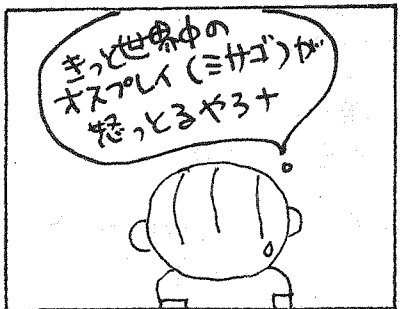 きっと世界中の
オスプレイ(ミサゴ)が
怒っとるやろナ